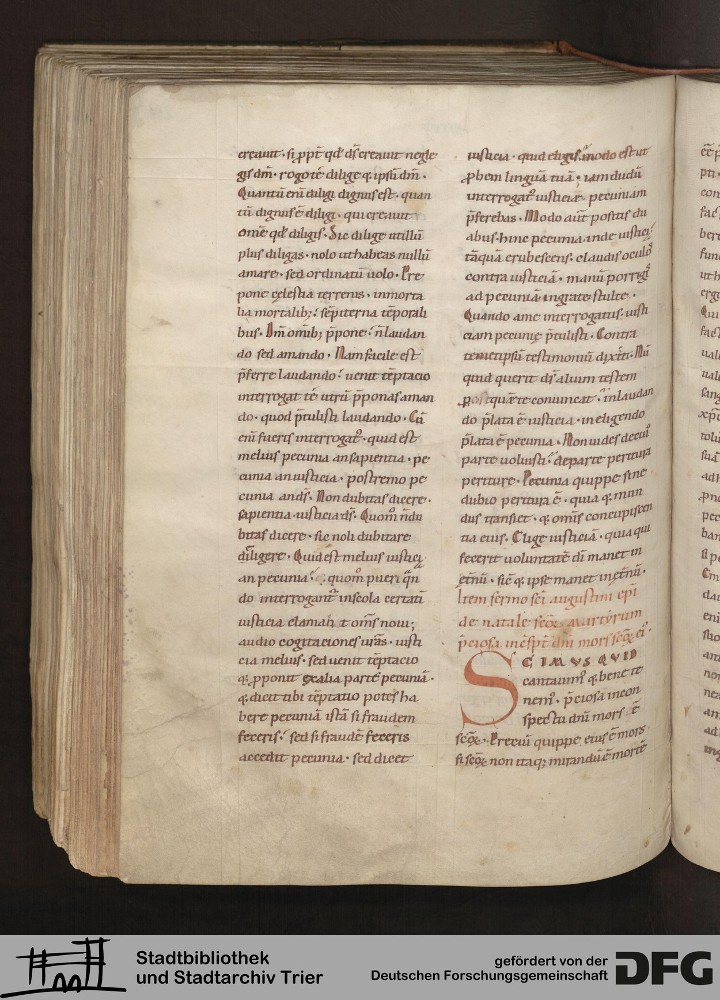 creauit · si ꝓpt̄ qd' d̄s creauit negle
gis dm̄ · rogo te dilige ⁊ ipsū dm̄ ·
Quantū eni diligi dignus est · quan
tū dignus ē diligi · qui creauit
om̄e qd' diligis · Sic dilige ut illū
plus diligas · nolo ut habeas nullū
amare · sed ordinatū uolo · Pre
pone celestia terrenis · inmorta
lia mortalib; · sēpiterna tēporali
bus · Dm̄ om̄ib; p̄pone · n̄ laudan
do sed amando · Nam facile est
p̄ferre laudando · uenit tēptacio
interrogat te utrū p̄ponas aman
do · quod p̄tulisti laudando · Cū
eni fueris interrogat' · quid est
melius pecunia an sapientia · pe
cunia an iusticia · postremo pe
cunia an d̄s · Non dubitas dicere ·
sapientia · iusticia · d̄s · Quom̊ n̄ du
bitas dicere · sic noli dubitare
diligere · Quid est melius iustici
an pecunia · quom̊ pueri q̄n
do interrogant' in scola certatī
iusticia clamat · t om̄s noui;
audio cogitaciones ur̄as · iusti
cia melius · sed uenit tēptacio
⁊ ꝓponit ex alia parte pecuniā ·
⁊ dicit tibi tēptatio potes ha
bere pecuniā istā si fraudem
feceris · sed si fraudē feceris
accedit pecunia · sed dicet
iusticia · quid eligis · modo est ut
ꝓbem linguā tuā · iam dudū
interrogat' iusticiā pecuniam
p̄ferebas · Modo aūt positus du
abus · hinc pecunia inde iustici
tāquā erubescens · claudis oculos
contra iusticiā · manū porrigis
ad pecuniā · ingrate · stulte ·
Quando a me interrogatus · iusti
ciam pecunie p̄tulisti · Contra
temetipsū testimoniū dixisti · Nū
quid querit d̄s alium testem
post quā te conuincat · in laudan
do p̄lata ē iusticia · in eligendo
p̄lata ē pecunia · Non uides de cui'
parte uoluisti · de parte peritura
periture · Pecunia quippe sine
dubio peritura ē · quia ⁊ mun
dus transiet · ⁊ om̄is concupiscen
tia eius · Elige iusticiā · quia qui
fecerit uoluntatē d̄i manet in
et̄nū · sic̄ ⁊ ipse manet in et̄nū ·
Item sermo sc̄i augustini ep̄i
de natale sc̄oꝝ martyrum
p̄ciosa in c̄spt̄ dn̄i mors sc̄oꝝ ei' ·
SCIMUS QUID
cantauim' ⁊ bene te
nem' · p̄ciosa in con
spectu dn̄i mors ē
sc̄oꝝ · Preciū quippe eius ē mors
si sc̄oꝝ non itaq; mirandū ē mortē
Stadtbibliothek
und Stadtarchiv Trier
gefördert von der
Deutschen Forschungsgemeinschaft
DFG